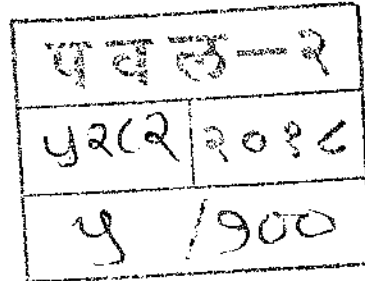 पवल-२
५२८२ २०१८
५ /१००